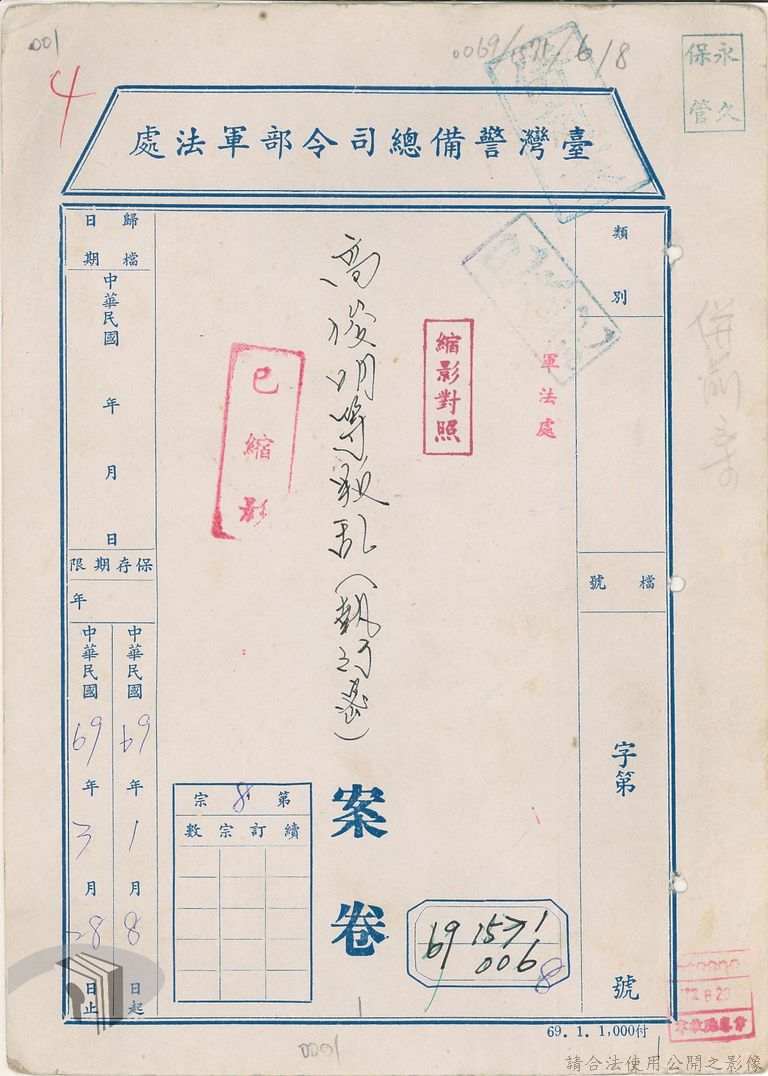 001
4
0069/1571/6/8
永久
保管
臺灣警備總司令部軍法處
類別
檔號
字第
號
軍法處
縮影對照
高俊明等叛乱(
)
案卷
已縮影
併
第8宗
續訂宗數
69 1571
006
8
歸檔
日期
中華民國
年
月
日
保存期限
年
中華民國69年1月8日起
中華民國69年3月28日止
69. 1. 1,000付
0001
請合法使用公開之影像